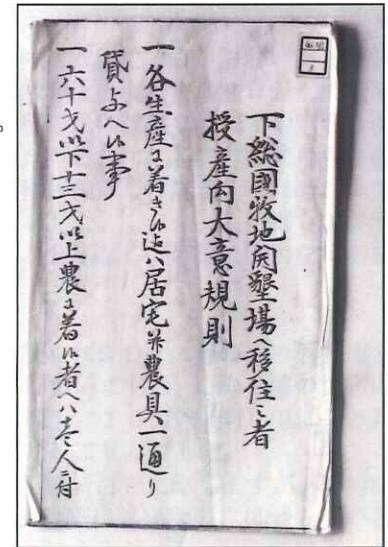 下総國牧地開墾場へ移住之者
授産向大意規則
一各生産ニ着き候迄ハ居宅并農具一通り
貸与へ候事
一六十才以下十三才以上農ニ着候者へハ壱人ニ付